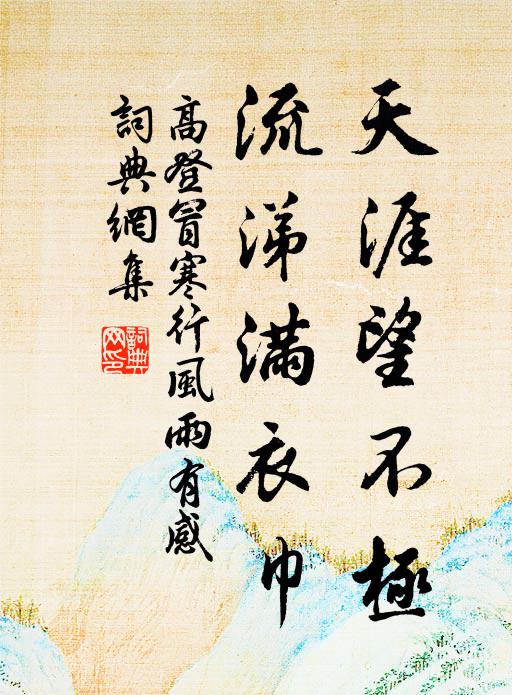 天涯望不極
流涕滿衣巾
高登冒寒行風雨有感
詞典網集
詞典
网印